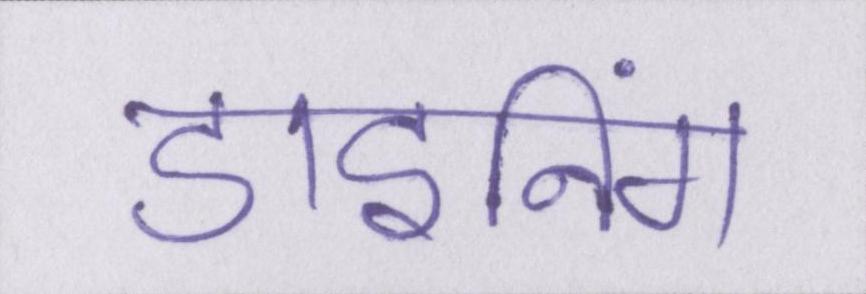 डाइनिंग